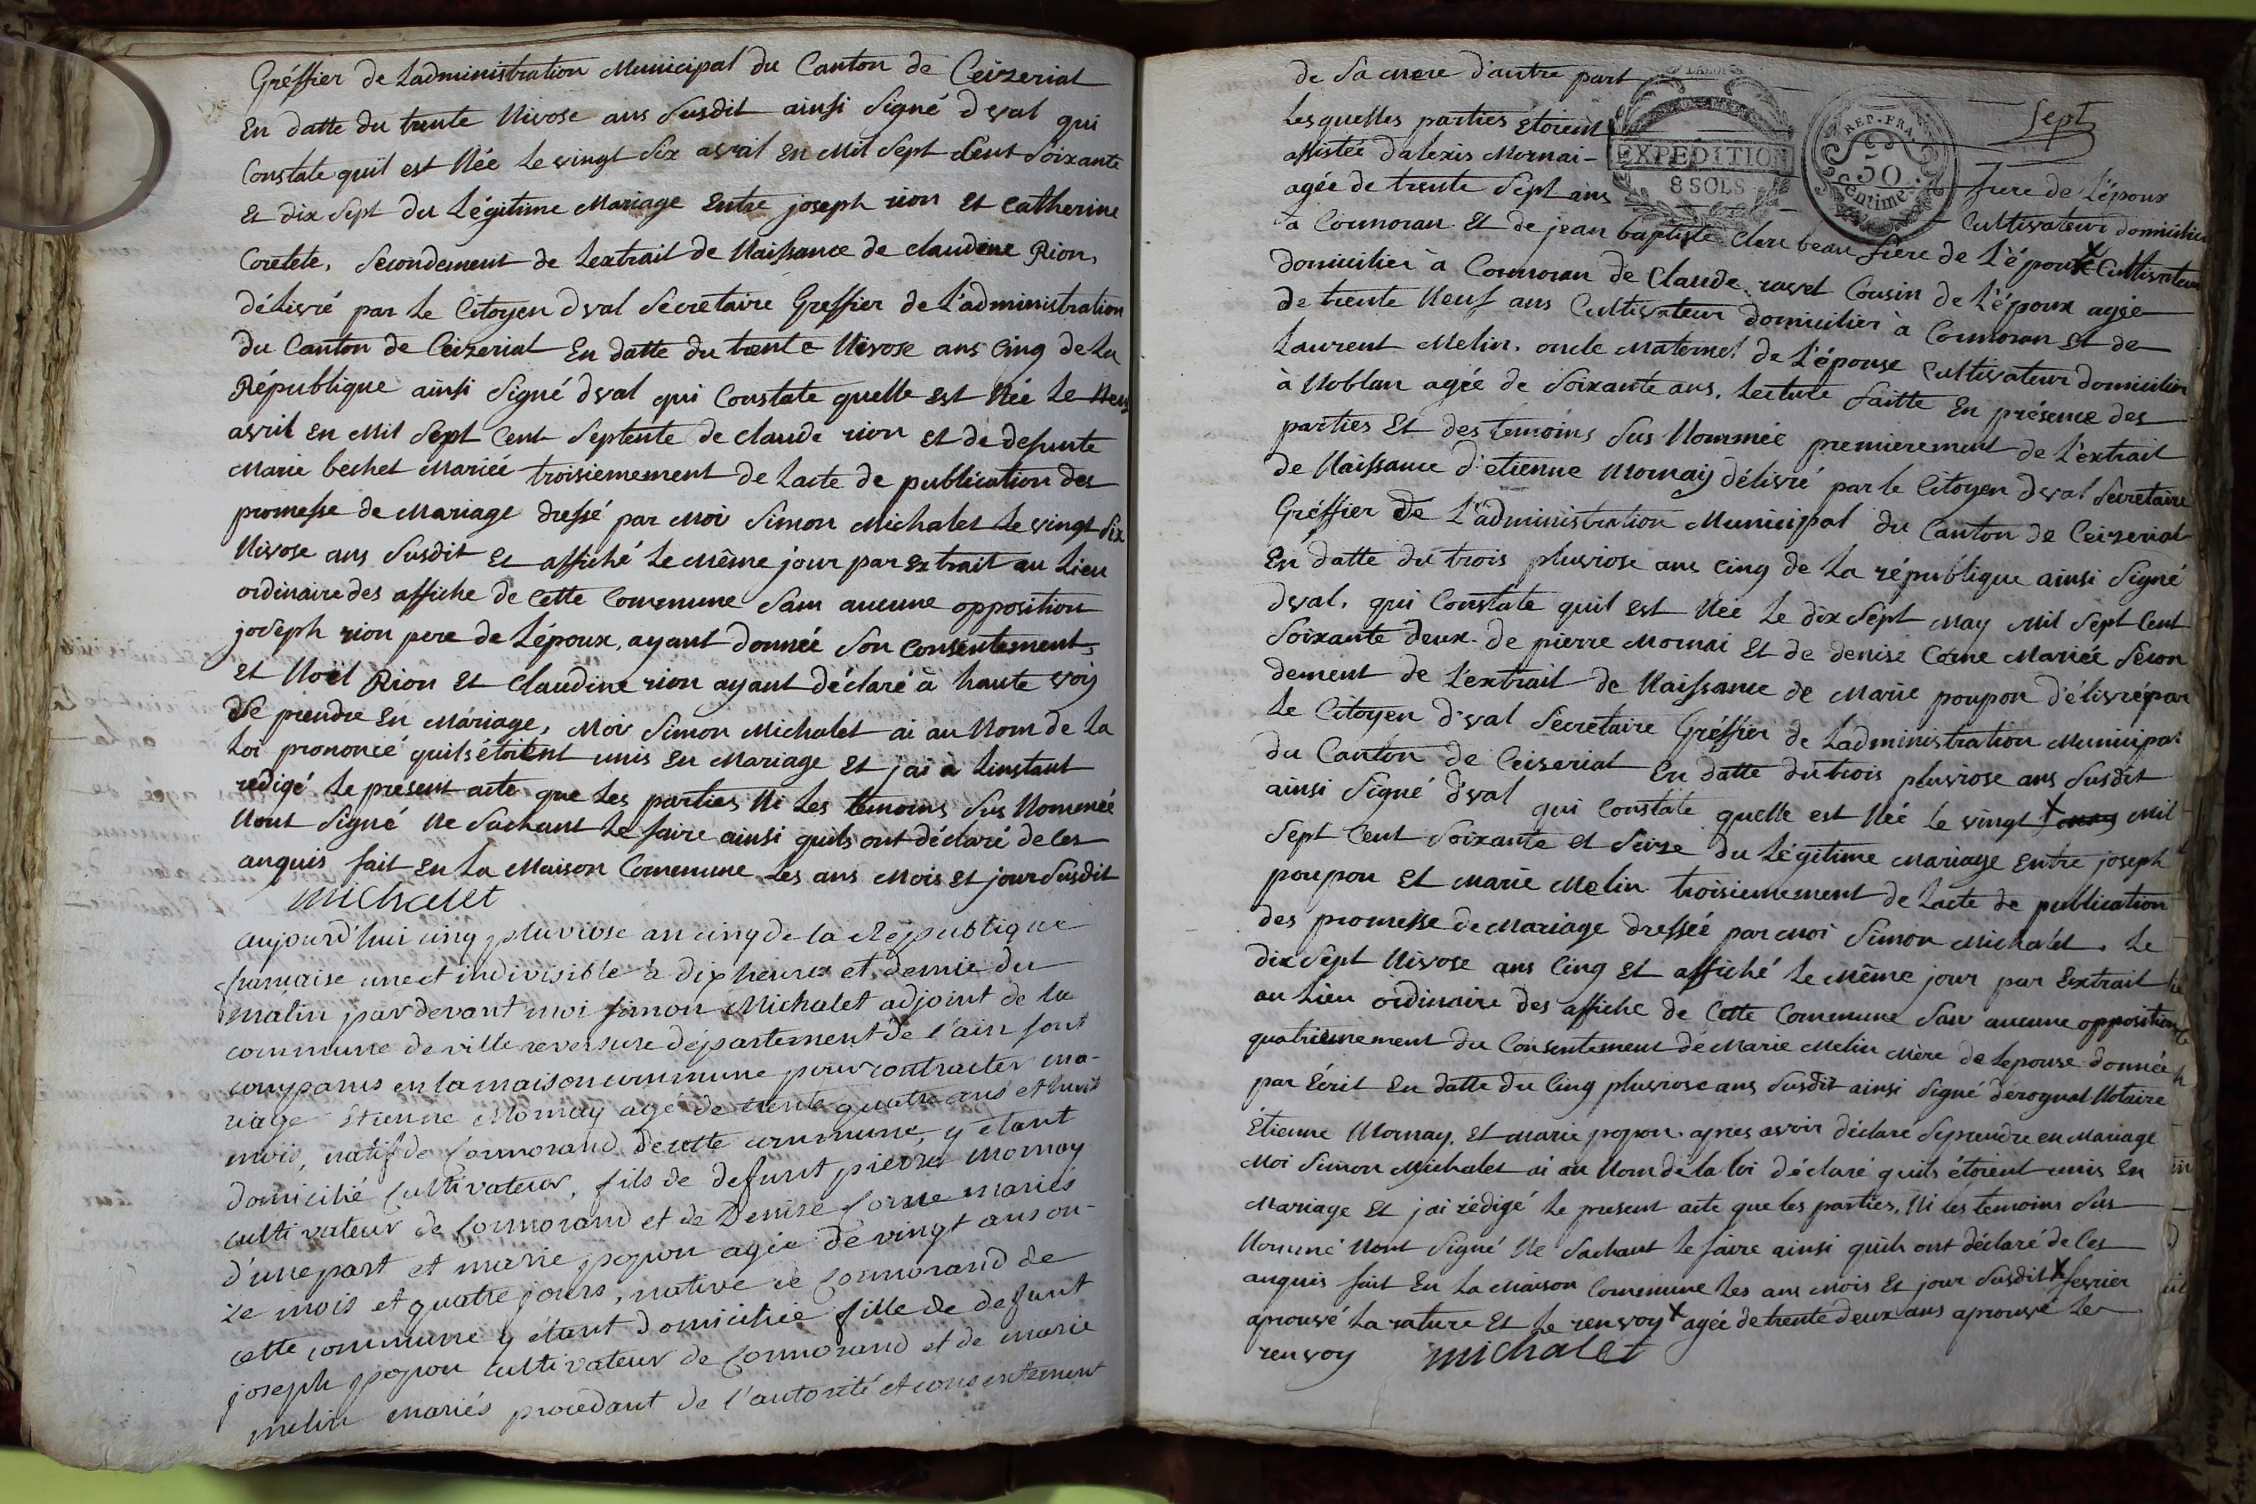 Gréffier de Ladministration Municipal du Canton de Ceizeriat
En datte du trente Nivose ans Susdit ainsi Signé dval qui
Constate quil est Née Le vingt Six avril En Mil Sept Cent Soixante
Et dix Sept du Légitime Mariage Entre joseph rion Et Catherine
Coretete, Secondement de Lextrait de Naissance de claudine Rion,
déLivré par Le Citoyen dval Secretaire Greffier de L'administration
du Canton de Ceizeriat En datte du trente Nivose ans Cinq de La
République ainsi Signé dval qui Constate quelle Est Née Le Neuf
avril En Mil Sept Cent Septente de claude rion Et de defunte
Marie bechet Mariée troisiemement de Lacte de publication des
promesse de Mariage dressé par Moi Simon Michalet Le vingt Six
Nivose ans Susdit Et affiché Le Même jour par Extrait au Lieu
ordinaire des affiche de Cette Commune Sans aucune opposition
joseph rion pere de Lépoux, ayant donnée Son Consentement
Et Noël Rion Et Claudine rion ayant déclaré à haute voix
Se prendre En Mariage, Moi Simon Michalet ai au Nom de La
Loi prononcé quils étoient unis En Mariage Et j'ai à Linstant
redigé Le present acte que Les parties Ni Les temoins Sus Nommée
Nont Signé Ne Sachant Le faire ainsi quils ont déclaré de Ces
anquis fait En La Maison Commune Les ans Mois Et jour Susdit
Michalet
aujourd'hui cinq pluviose an cinq de la République
francaise une et indivisible à dix heures et demie du
matin par devant moi simon Michalet adjoint de la
commune de ville reversure département de l'ain sont
comparus en la maison commune pour contracter ma-
riage Etienne Mornay agé de trente quatre ans et huit
mois, natif de Cormorand de cette commune, y étant
domicilié cultivateur, fils de defunt pierre Mornay
cultivateur de Cormorand et de Denise Corne mariés
d'une part et marie popon agée de vingt ans on-
ze mois et quatre jours, native de Cormorand de
cette commune y étant domiciliée fille de defunt
joseph popon cultivateur de Cormorand et de marie
melin mariés procedant de l'autorité et consentement
de Sa Mere d'autre part
Sept
EXPEDITION
8 SOLS
REP. FRA.
50
Centimes
Lesquelles parties Etoient
assistée dalexis Mornai
agée de trente Sept ans frere de L'époux Cultivateur domicilier
à Cormoran Et de jean baptiste Clerc beau frere de L'époux x Cultivateur
domicilier à Cormoran de Claude ravet Cousin de L'époux agée
de trente Neuf ans Cultivateur domicilier à Cormoran Et de
Laurent Melin, oncle Maternel de L'épouse Cultivateur domicilier
à Noblan agée de Soixante ans, Lecture faitte En présence des
parties Et des temoins Sus Nommée premierement de L'extrait
de Naissance d'etienne Mornay délivré par le Citoyen dval Secretaire
Gréffier de L'administration Municipal du Canton de Ceizeriat
En datte du trois pluviose ans Cinq de La république ainsi Signé
dval, qui Constate quil est Née Le dix Sept May Mil Sept Cent
Soixante deux de pierre Mornai Et de denise Corne Mariée Secon
dement de L'extrait de Naissance de Marie poupon délivré par
Le Citoyen dval Secretaire Gréffier de Ladministration Municipal
du Canton de Ceizeriat En datte du trois pluviose ans Susdit
ainsi Signé dval qui Constate quelle est Née Le vingt x may Mil
Sept Cent Soixante et Seize du Légitime Mariage Entre joseph
poupon Et Marie Melin troisiemement de Lacte de publication
des promesse de Mariage dressée par Moi Simon Michalet, Le
dix Sept Nivose ans Cinq Et affiché Le Même jour par Extrait
au Lieu ordinaire des affiche de Cette Commune San aucune opposition
quatriemement du Consentement de Marie Melin Mère de Lepouse donnée
par Ecrit En datte du Cinq pluviose ans Susdit ainsi Signé derognat Notaire
Etienne Mornay, Et Marie popon apres avoir déclaré Se prendre en Mariage
Moi Simon Michalet ai au Nom de la loi déclaré quils étoient unis En
Mariage Et j'ai rédigé Le present acte que Les parties, Ni les temoins Sus
Nommé Nont Signé Ne Sachant Le faire ainsi quils ont déclaré de Ces
anquis fait En La Maison Commune Les ans Mois Et jour Susdit x fevrier
aprouvé La rature Et Le renvoy x agée de trente deux ans aprouvé Le
renvoy Michalet